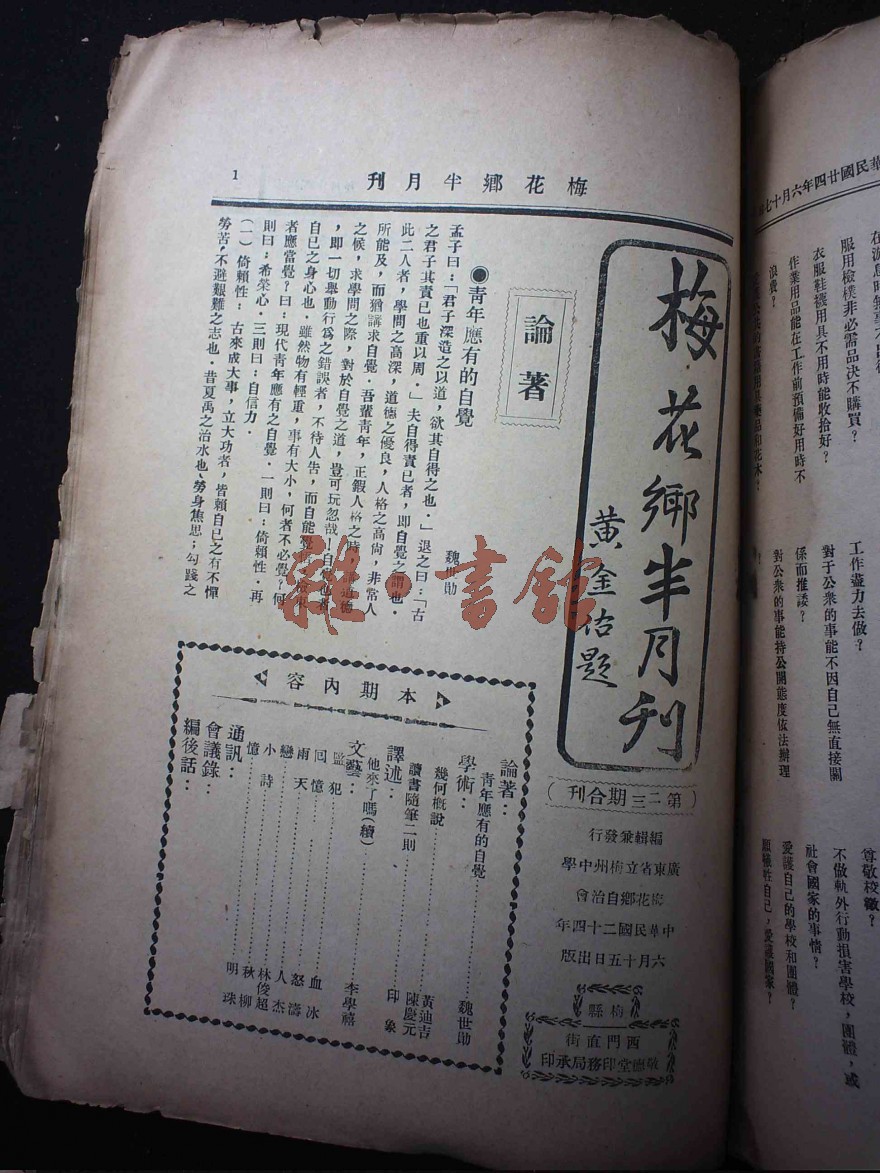 梅花鄉半月刊
1
梅花鄉半月刊
黃金佑題
第二三期合刊
編輯兼發行
廣東省立梅州中學
梅花鄉自治會
中華民國二十四年
六月十五日出版
梅縣
西門直街
敬德堂印務局承印
論著
●青年應有的自覺
魏世勛
孟子曰：「君子深造之以道，欲其自得之也．」退之曰：「古
之君子其責已也重以周．」夫自得責已者，即自覺之謂也．
此二人者，學問之高深，道德之優良，人格之高尙，非常人
所能及，而猶講求自覺．吾輩靑年，正鍜人格之時，道德
之候，求學問之際，對於自覺之道，豈可玩忽哉！自覺也者
，即一切舉動行爲之錯誤者，不待人告，而自能
自已之身心也．雖然物有輕重，事有大小，何者不必覺？何
者應當覺？曰：現代靑年應有之自覺．一則曰：倚賴性．再
則曰；希榮心．三則曰：自信力．
（一）倚賴性： 古來成大事，立大功者，皆賴自已之有不憚
勞苦，不避艱難之志也．昔夏禹之治水也、勞身焦思；勾踐之
本期內容
論著：
靑年應有的自覺……魏世勛
學術：
幾何槪說……黃迪吉
讀書隨筆二則……陳慶元
譯述：
他來了嗎(續)……印象
文藝：
監犯……李學禧
回憶……血冰
雨天……怒濤
戀……人杰
小詩……林俊超
憶……秋柳
通訊：……明珠
會議錄：
編後話：
雜·書館
華民國廿四年六月十七
服用檢樸非必需品決不購買？
衣服鞋襪用具不用時能收拾好？
作業用品能在工作前預備好用時不
浪費？
工作盡力去做？
對于公衆的事能不因自己無直接關
係而推諉？
對公衆的事能持公開態度依法辦理
？
尊敬校徽？
不做軌外行動損害學校，團體，或
社會國家的事情？
愛護自己的學校和團體？
願犧牲自己，愛護國家？